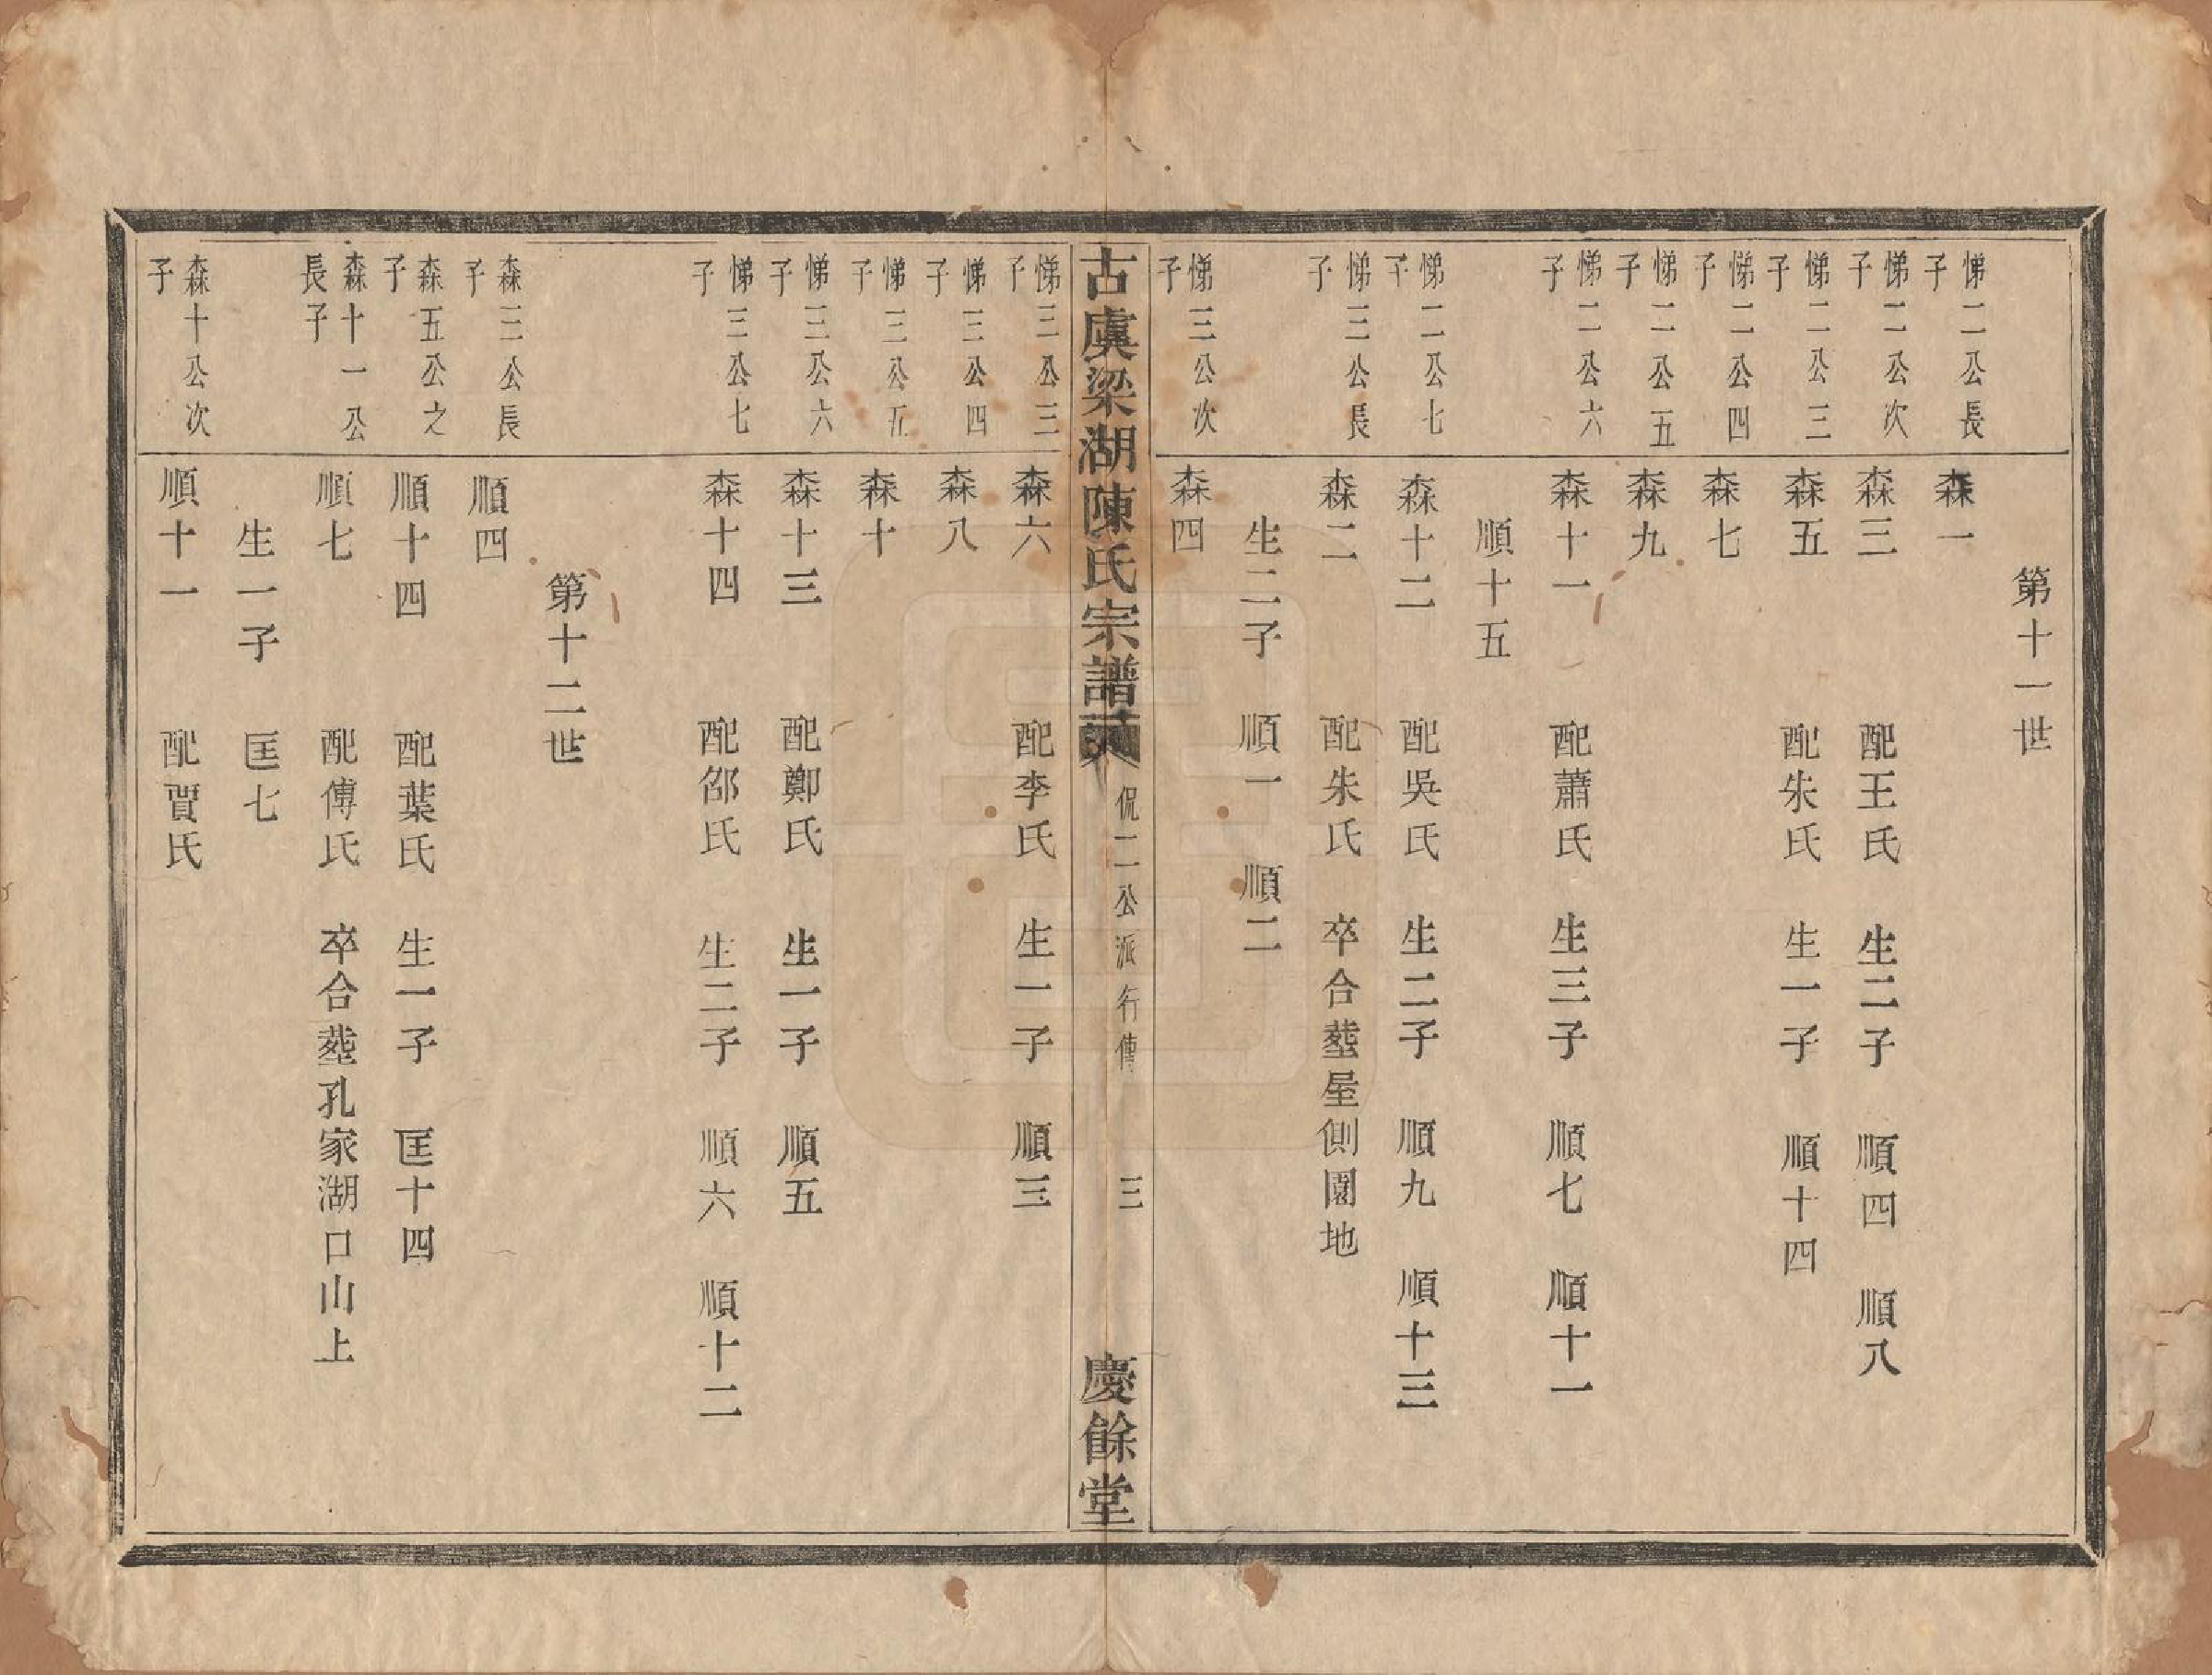 第十一世
悌二公長子 森一
悌二公次子 森三 配王氏 生二子 順四 順八
悌二公三子 森五 配朱氏 生一子 順十四
悌二公四子 森七
悌二公五子 森九
悌二公六子 森十一 配蕭氏 生三子 順七 順十一
順十五
悌二公七子 森十二 配吳氏 生二子 順九 順十三
悌三公長子 森二 配朱氏 卒合塟屋側園地
生二子 順一 順二
悌三公次子 森四
古虞梁湖陳氏宗譜 侃二公派行傳 三 慶餘堂
悌三公三子 森六 配李氏 生一子 順三
悌三公四子 森八
悌三公五子 森十
悌三公六子 森十三 配鄭氏 生一子 順五
悌三公七子 森十四 配邵氏 生二子 順六 順十二
第十二世
森三公長子 順四
森五公之子 順十四 配葉氏 生一子 匡十四
森十一公長子 順七 配傅氏 卒合塟孔家湖口山上
生一子 匡七
森十公次子 順十一 配賈氏